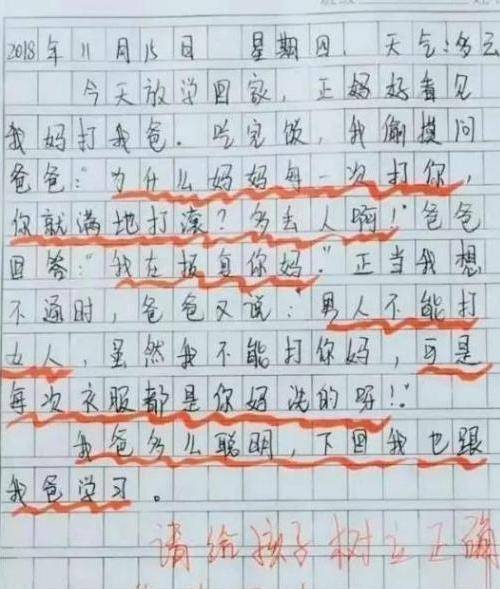 2018年11月15日 星期四. 天气:多云
今天放学回家，正妈好看见
我妈打我爸．吃完饭，我偷摸问
爸爸："为什么妈妈每一次打你，
你就满地打滚？多丢人啊！"爸爸
回答："我在报复你妈."正当我想
不通时，爸爸又说："男人不能打
女人，虽然我不能打你妈，可是
每次衣服都是你妈洗的呀!"
我爸多么聪明，下回我也跟
我爸学习。
请给孩子树立正确